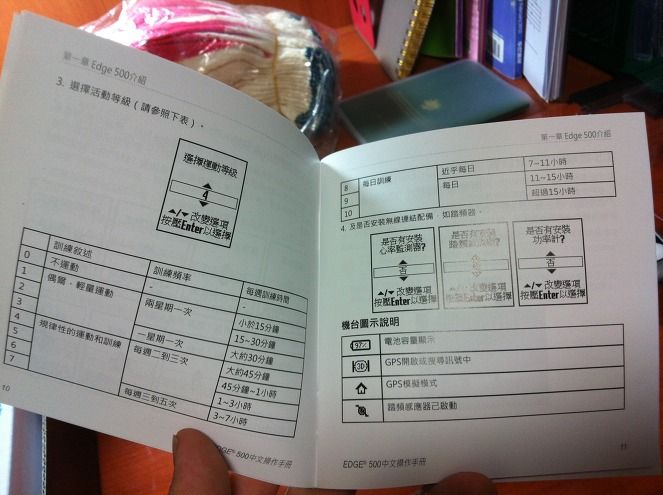 第一章 Edge 500介紹
3. 選擇活動等級（請參照下表）。
選擇運動等級
4
▲/▼ 改變選項
按壓Enter以選擇
訓練敘述 訓練頻率 每週訓練時間
0 不運動 - -
1 偶爾，輕量運動 兩星期一次 小於15分鐘
2 15~30分鐘
3 一星期一次 大約30分鐘
4 規律性的運動和訓練 每週二到三次 大約45分鐘
5 45分鐘~1小時
6 1~3小時
7 每週三到五次 3~7小時
10
EDGE® 500中文操作手冊
第一章 Edge 500介紹
8 每日訓練 近乎每日 7~11小時
9 每日 11~15小時
10 超過15小時
4. 及是否安裝無線連結配備，如踏頻器。
是否有安裝
心率監測器?
否
▲/▼ 改變選項
按壓Enter以選擇
是否有安裝
否
▲/▼ 改變選項
按壓Enter以選擇
是否有安裝
功率計?
否
▲/▼ 改變選項
按壓Enter以選擇
機台圖示說明
97% 電池容量顯示
3D GPS開啟或搜尋訊號中
GPS模擬模式
踏頻感應器己啟動
EDGE® 500中文操作手冊
11